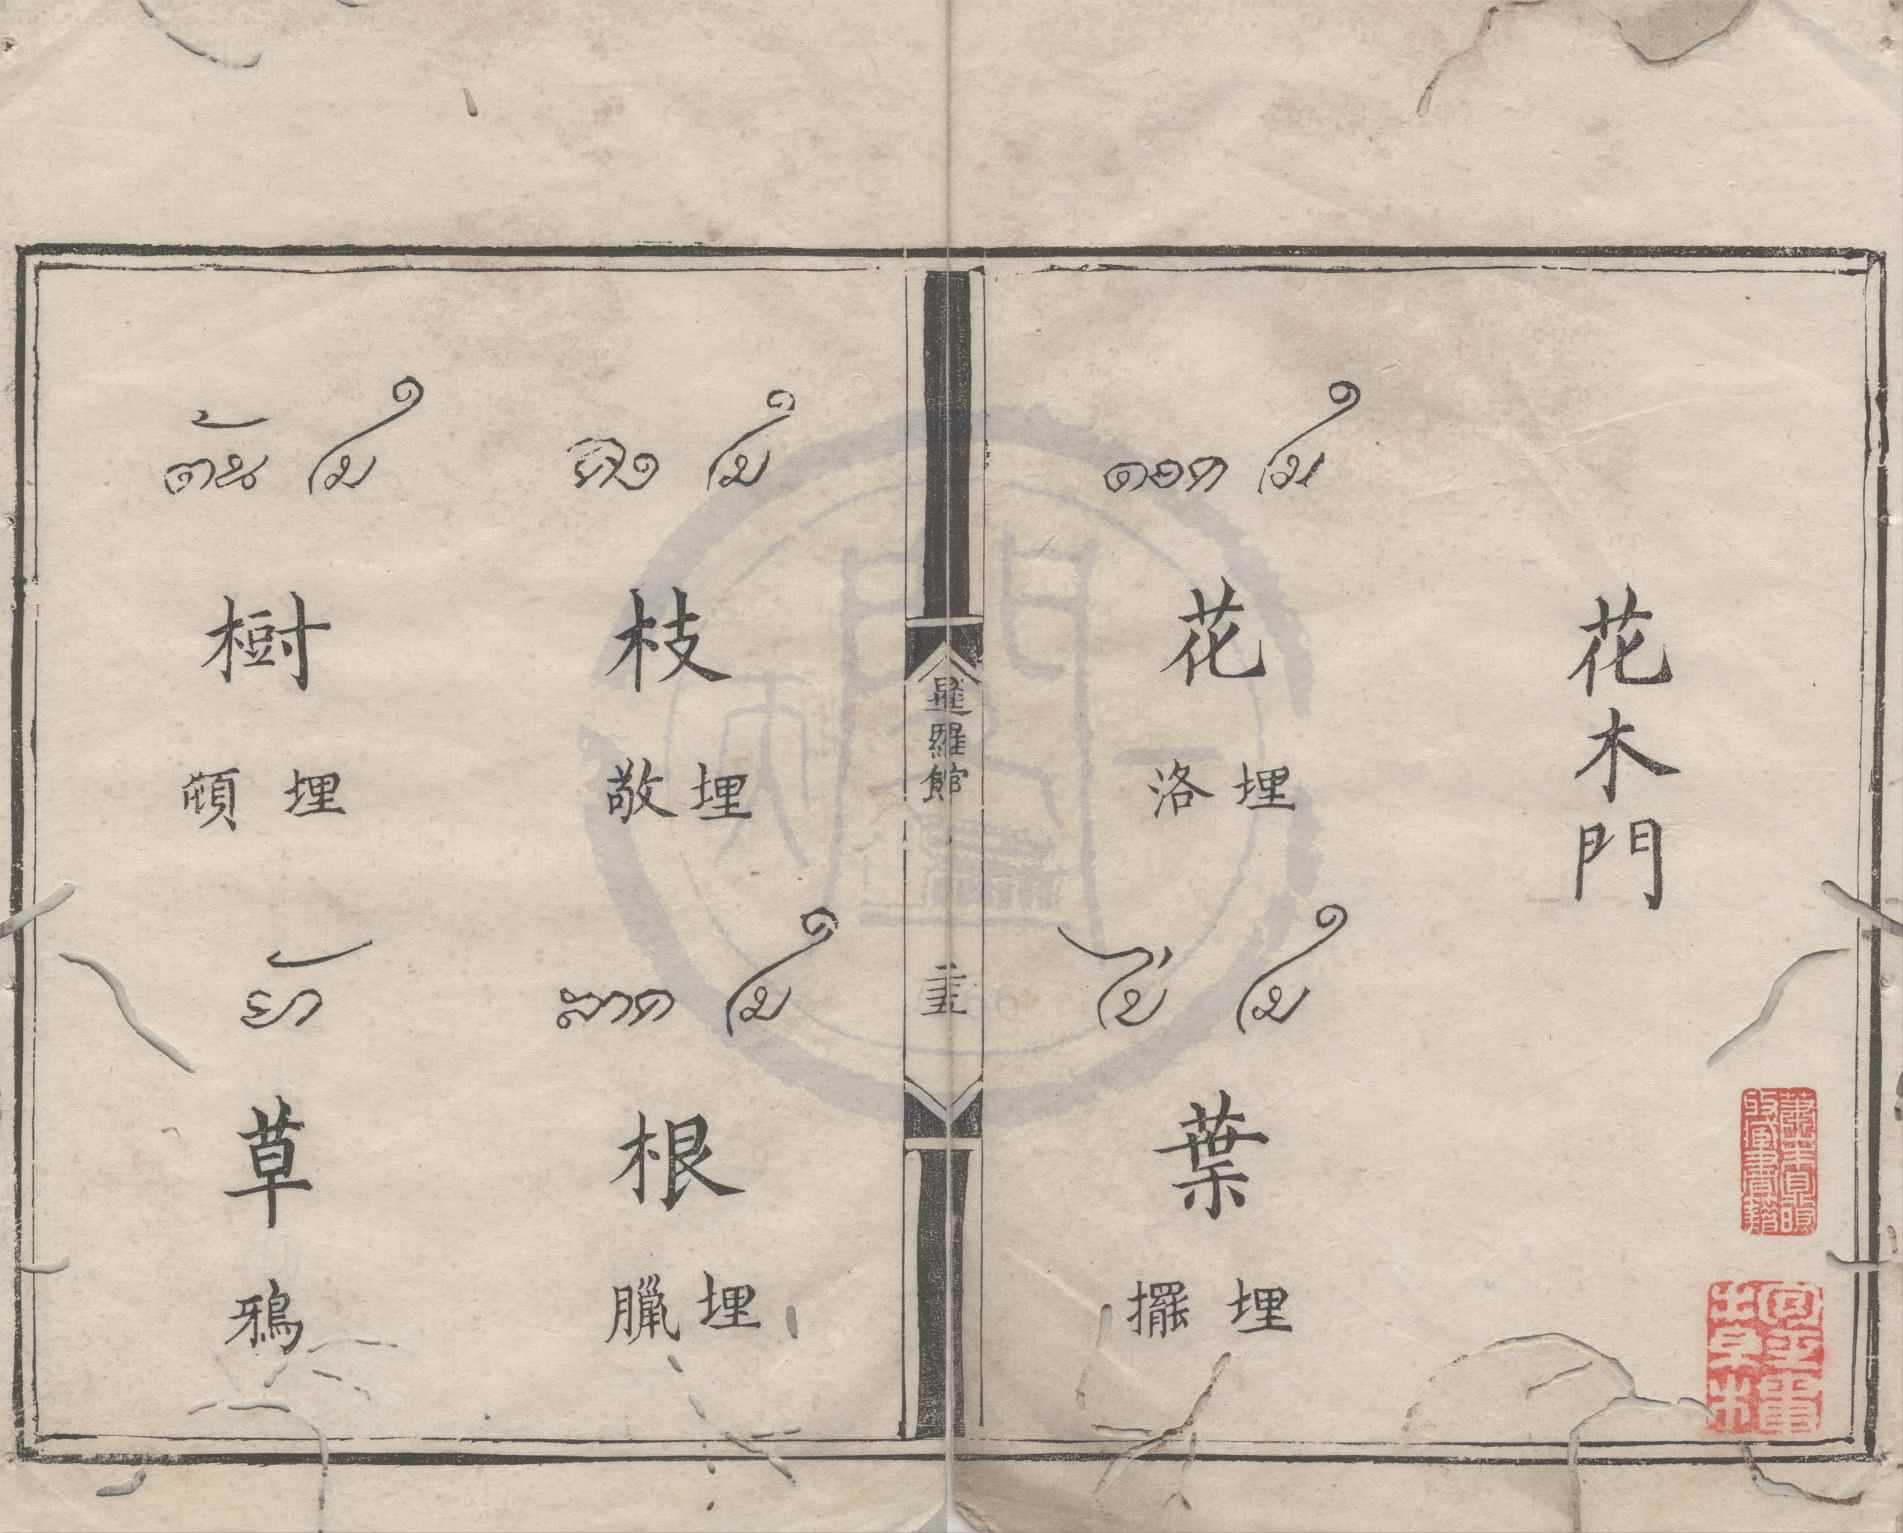 花木門
ดอก ไม
花
洛 埋
ใบ ไม
葉
擺 埋
暹羅館
二五
กิง ไม
枝
敬 埋
ราก ไม
根
臘 埋
ต้น ไม
樹
頓 埋
ย้า
草
鴉
蕭山朱鼎煦
收藏書籍